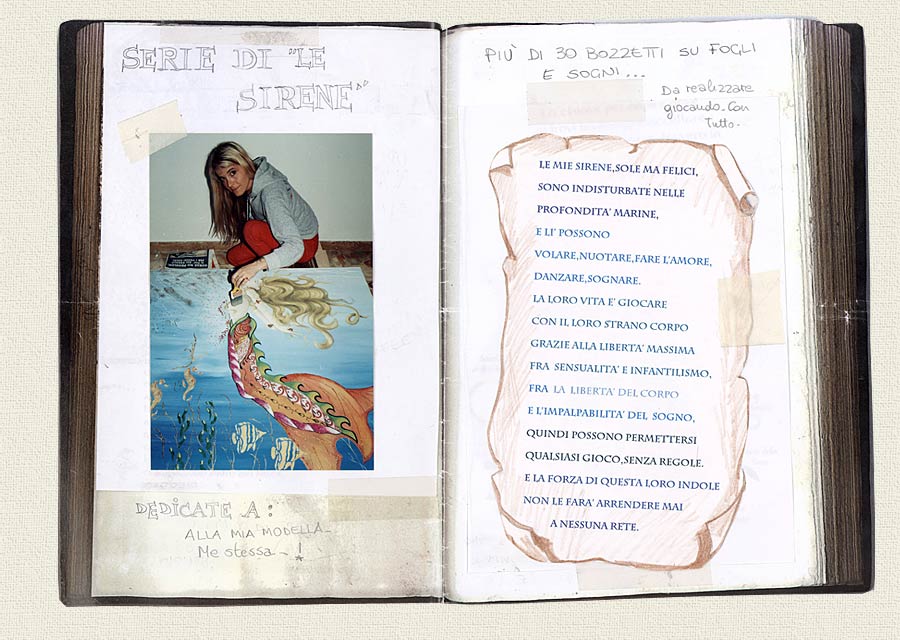 SERIE DI "LE
SIRENE"
DEDICATE A:
ALLA MIA MODELLA
Me stessa - !
PIÙ DI 30 BOZZETTI SU FOGLI
E SOGNI...
Da realizzate
giocando. Con
Tutto.
LE MIE SIRENE,SOLE MA FELICI,
SONO INDISTURBATE NELLE
PROFONDITA' MARINE,
E LI' POSSONO
VOLARE,NUOTARE,FARE L'AMORE,
DANZARE,SOGNARE.
LA LORO VITA E' GIOCARE
CON IL LORO STRANO CORPO
GRAZIE ALLA LIBERTA' MASSIMA
FRA SENSUALITA' E INFANTILISMO,
FRA LA LIBERTA' DEL CORPO
E L'IMPALPABILITA' DEL SOGNO,
QUINDI POSSONO PERMETTERSI
QUALSIASI GIOCO,SENZA REGOLE.
E LA FORZA DI QUESTA LORO INDOLE
NON LE FARA' ARRENDERE MAI
A NESSUNA RETE.